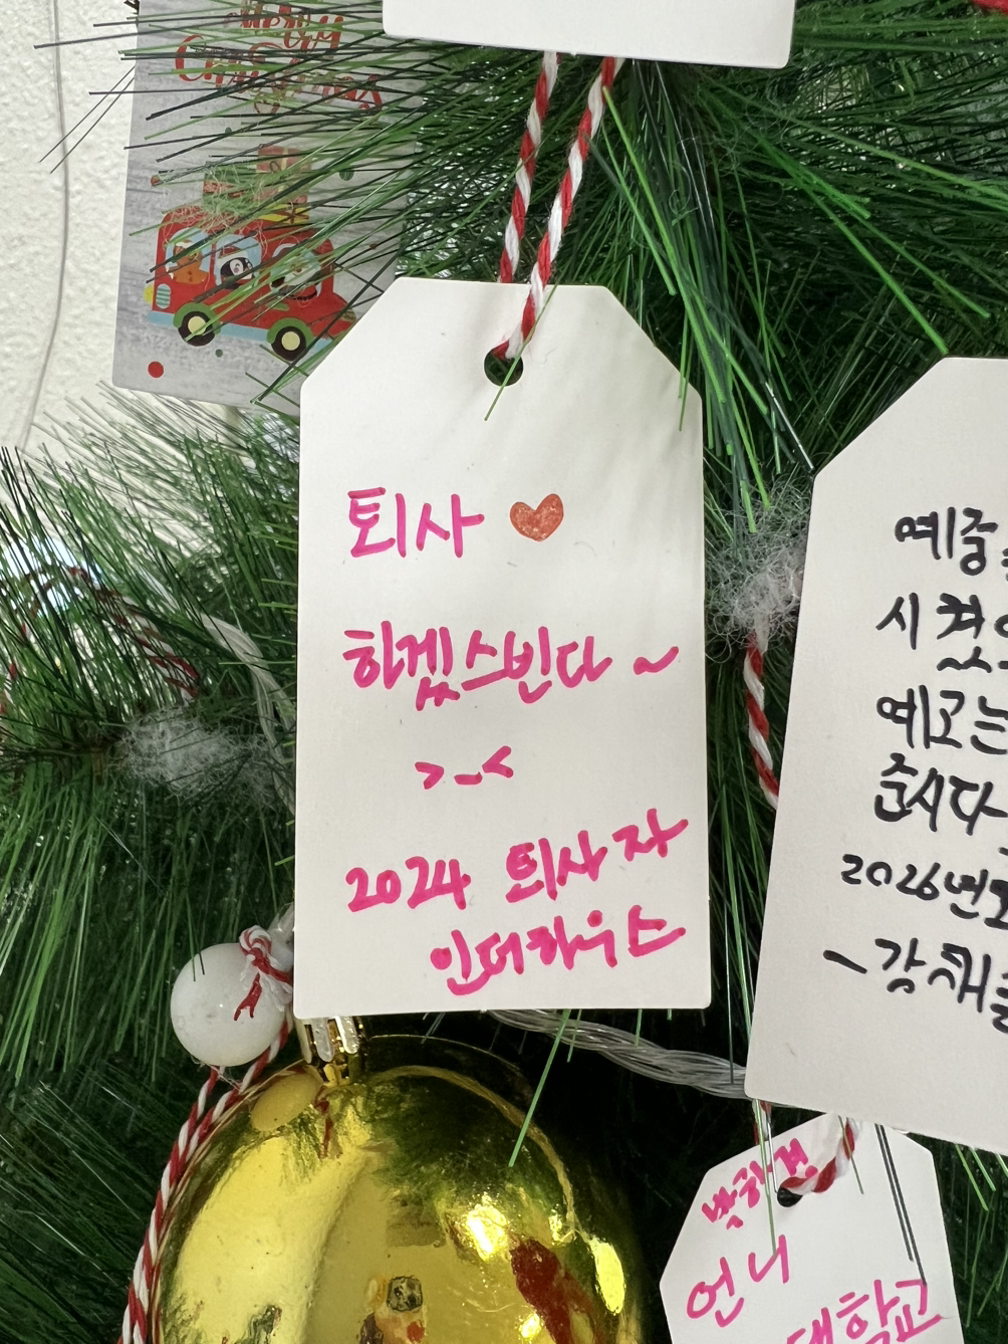 Merry
Christmas
퇴사 ♥
하겠스빈다 ~
>_<
2024 퇴사자
인더하우스
예중
시켰
예고는
준시다
2026년도
언니
대학교